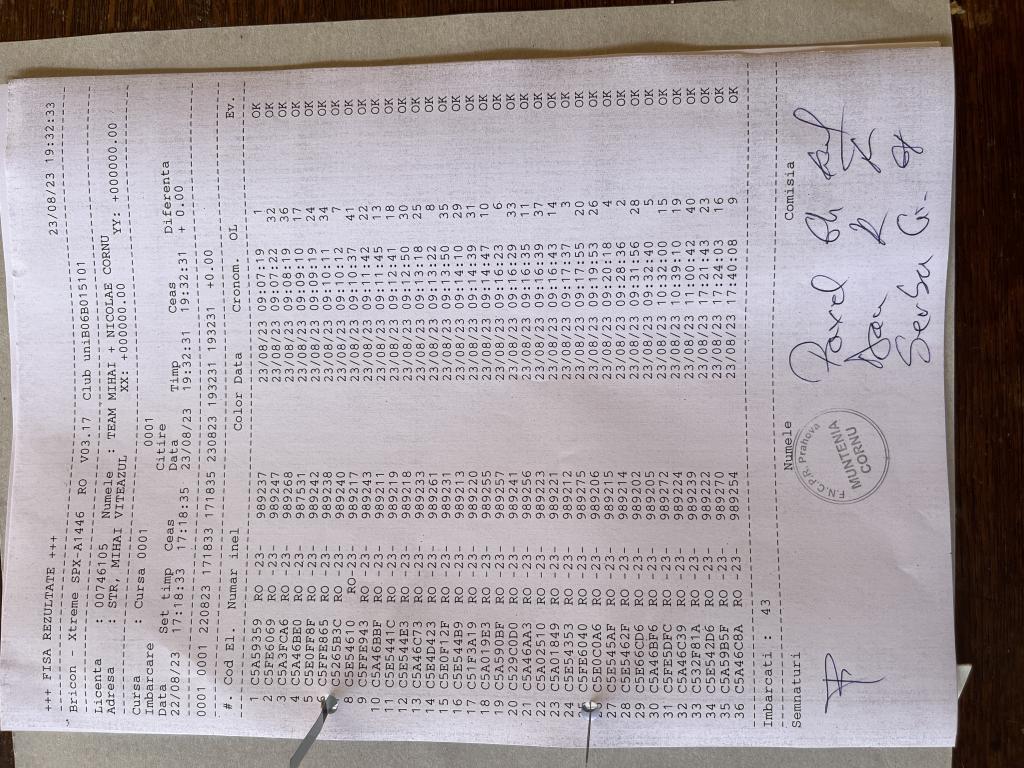 +++ FISA REZULTATE +++ 23/08/23 19:32:33
Bricon - Xtreme SPX-A1446 RO V03.17 Club uniB06B015101
Licenta : 00746105 Numele : TEAM MIHAI + NICOLAE CORNU
Adresa : STR, MIHAI VITEAZUL XX: +000000.00 YY: +000000.00
Cursa : Cursa 0001 0001
Imbarcare Citire
Data Set timp Ceas Data Timp Ceas Diferenta
22/08/23 17:18:33 17:18:35 23/08/23 19:32:31 19:32:31 + 0.00
0001 0001 220823 171833 171835 230823 193231 193231 +0.00
# Cod El. Numar inel Color Data Cronom. OL Ev.
1 C5A59359 RO -23- 989237 23/08/23 09:07:19 1 OK
2 C5FE6069 RO -23- 989247 23/08/23 09:07:22 32 OK
3 C2A3FCA6 RO -23- 989268 23/08/23 09:08:19 36 OK
4 C5A46BE0 RO -23- 987531 23/08/23 09:09:10 17 OK
5 C5E0FF8F RO -23- 989242 23/08/23 09:09:19 24 OK
6 C5FFE865 RO -23- 989238 23/08/23 09:10:11 34 OK
C5E55B3C RO -23- 989240 23/08/23 09:10:12 7 OK
8 C5E54610 RO -23- 989217 23/08/23 09:10:37 41 OK
9 C5FFE943 RO -23- 989243 23/08/23 09:11:42 22 OK
10 C5A46BBF RO -23- 989211 23/08/23 09:11:45 13 OK
11 C5E5441C RO -23- 989219 23/08/23 09:12:41 18 OK
12 C5E544E3 RO -23- 989218 23/08/23 09:12:50 30 OK
13 C5A46C73 RO -23- 989233 23/08/23 09:13:18 25 OK
14 C5E4D423 RO -23- 989261 23/08/23 09:13:22 8 OK
15 C5E0F12F RO -23- 989231 23/08/23 09:13:50 35 OK
16 C5E544B9 RO -23- 989213 23/08/23 09:14:10 29 OK
17 C51F3A19 RO -23- 989220 23/08/23 09:14:39 31 OK
18 C5A019E3 RO -23- 989255 23/08/23 09:14:47 10 OK
19 C5A590BF RO -23- 989257 23/08/23 09:16:23 6 OK
20 C529C0D0 RO -23- 989241 23/08/23 09:16:29 33 OK
21 C5A46AA3 RO -23- 989256 23/08/23 09:16:35 11 OK
22 C5A02510 RO -23- 989223 23/08/23 09:16:39 37 OK
23 C5A01849 RO -23- 989221 23/08/23 09:16:43 14 OK
24 C5E54353 RO -23- 989212 23/08/23 09:17:37 3 OK
C5FE6040 RO -23- 989275 23/08/23 09:17:55 20 OK
C5E0C0A6 RO -23- 989206 23/08/23 09:19:53 26 OK
27 C5E545AF RO -23- 989215 23/08/23 09:20:18 4 OK
28 C5E5462F RO -23- 989214 23/08/23 09:28:36 2 OK
29 C5E66CD6 RO -23- 989202 23/08/23 09:31:56 28 OK
30 C5A46BF6 RO -23- 989205 23/08/23 09:32:40 5 OK
31 C5FE5DFC RO -23- 989272 23/08/23 10:32:00 15 OK
32 C5A46C39 RO -23- 989224 23/08/23 10:39:10 19 OK
33 C532F81A RO -23- 989239 23/08/23 11:00:42 40 OK
34 C5E542D6 RO -23- 989222 23/08/23 17:21:43 23 OK
35 C5A59B5F RO -23- 989270 23/08/23 17:24:03 16 OK
36 C5A46C8A RO -23- 989254 23/08/23 17:40:08 9 OK
Imbarcati : 43
Semnaturi Numele Comisia
F.N.C.P.R. Prahova
MUNTENIA
CORNU